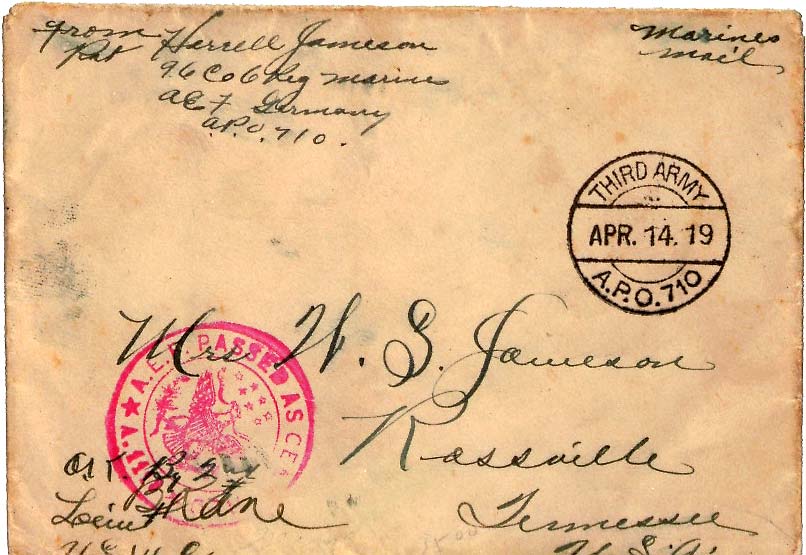 From Harrell Jameson
Pvt 96 Co 6 Reg marine
AEF Germany
A.P.O. 710.
Marines
mail
THIRD ARMY
APR. 14. 19
A.P.O. 710
Mrs W. S. Jameson
Rossville
Tennessee
A.E.F. PASSED AS CE